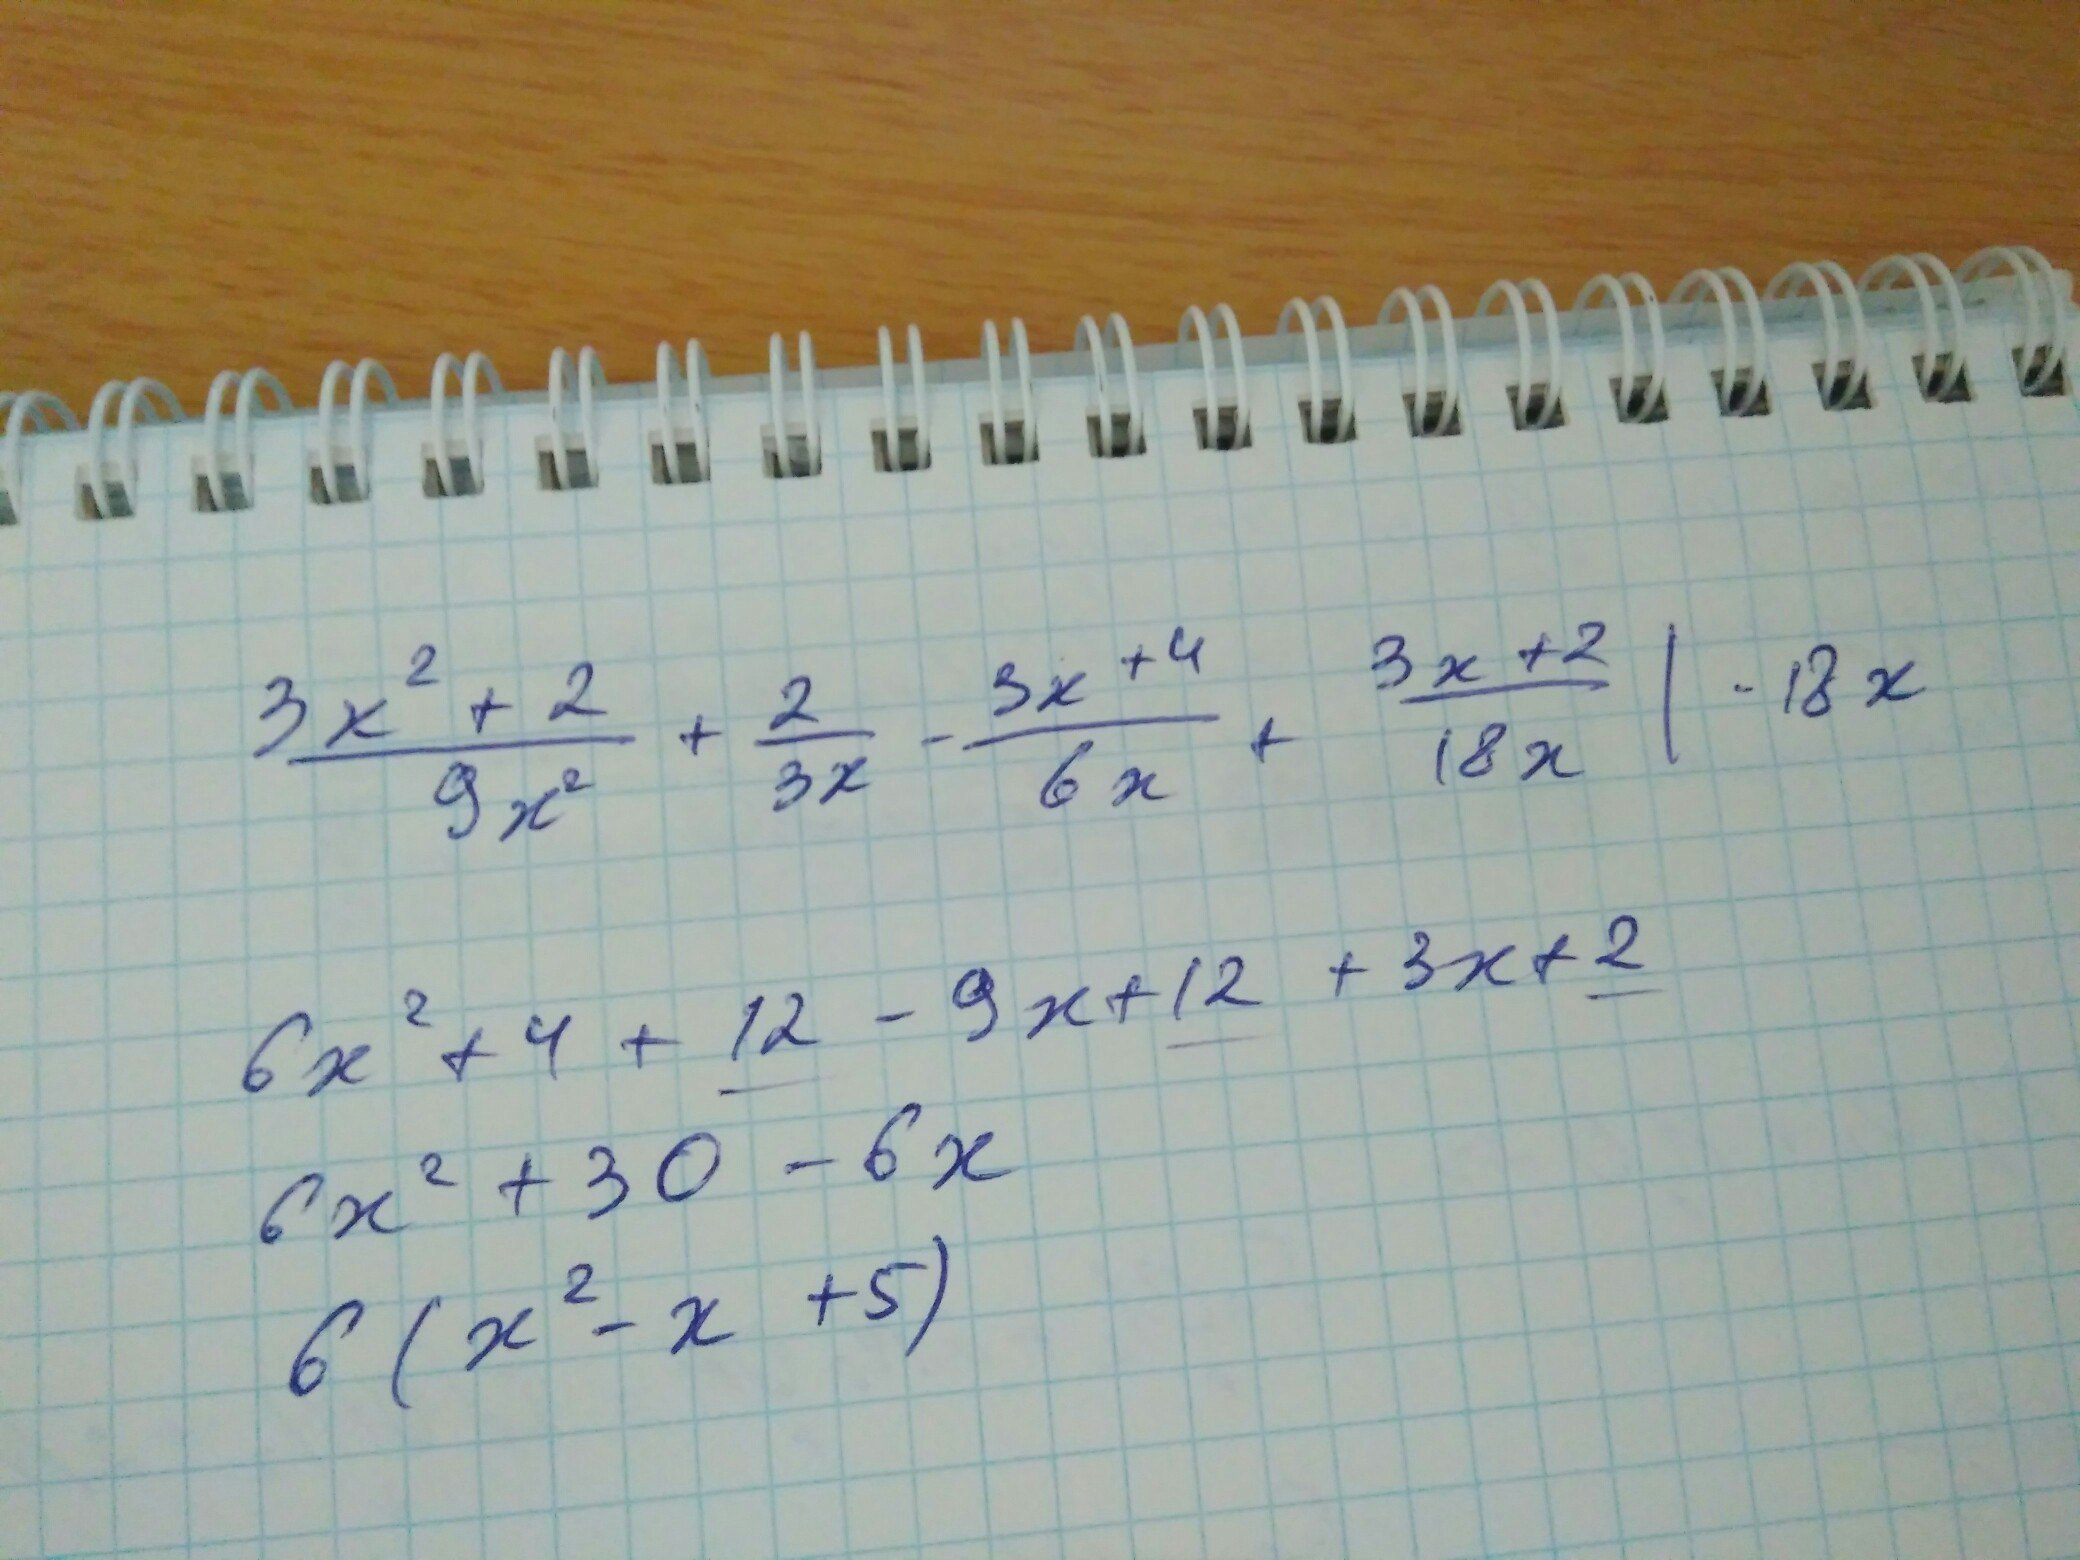 (3x² + 2)/(9x²) + 2/(3x) - (3x + 4)/(6x) + (3x + 2)/(18x) | · 18x
6x² + 4 + 12 - 9x + 12 + 3x + 2
6x² + 30 - 6x
6(x² - x + 5)